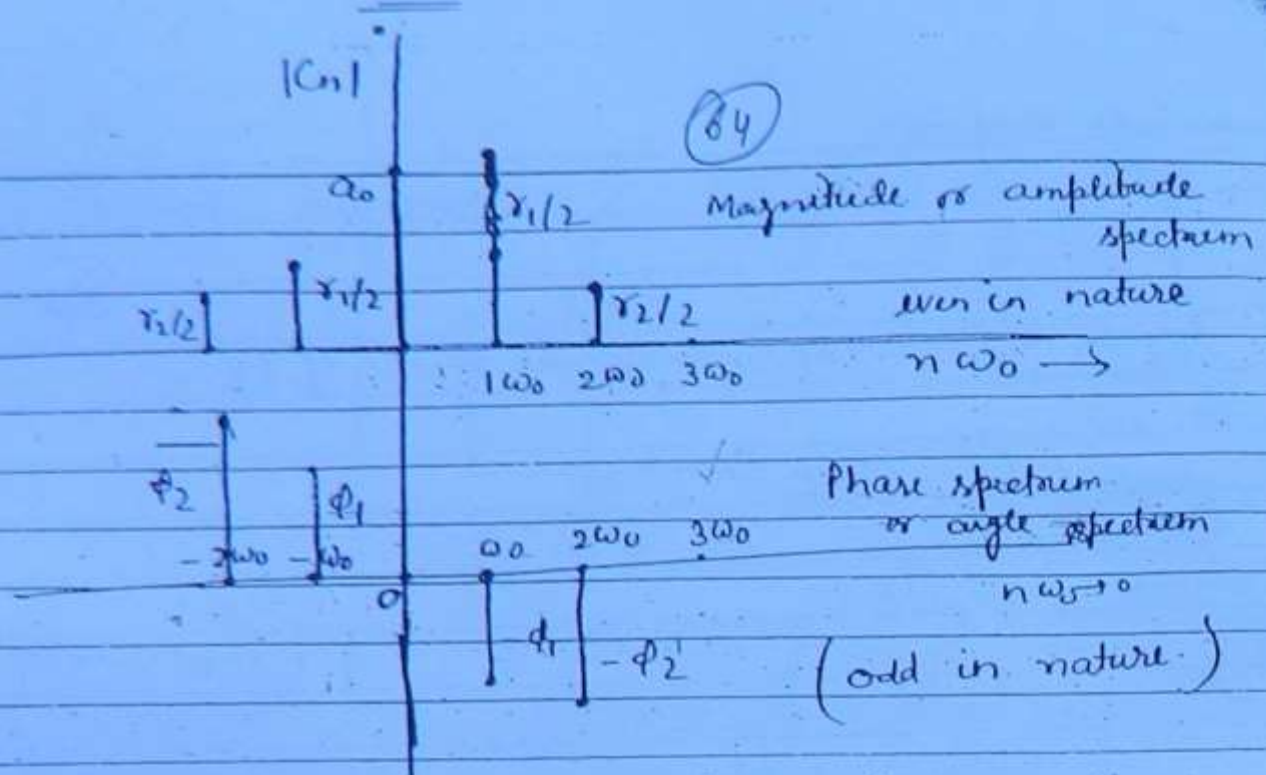 |Cn|
64
a₀
r₁/2
Magnitude or amplitude
spectrum
r₂/2
r₁/2
r₂/2
even in nature
1ω₀ 2ω₀ 3ω₀
nω₀ →
φ₂
φ₁
Phase spectrum
or angle spectrum
-2ω₀ -ω₀
ω₀ 2ω₀ 3ω₀
0
-φ₁
-φ₂
(odd in nature.)